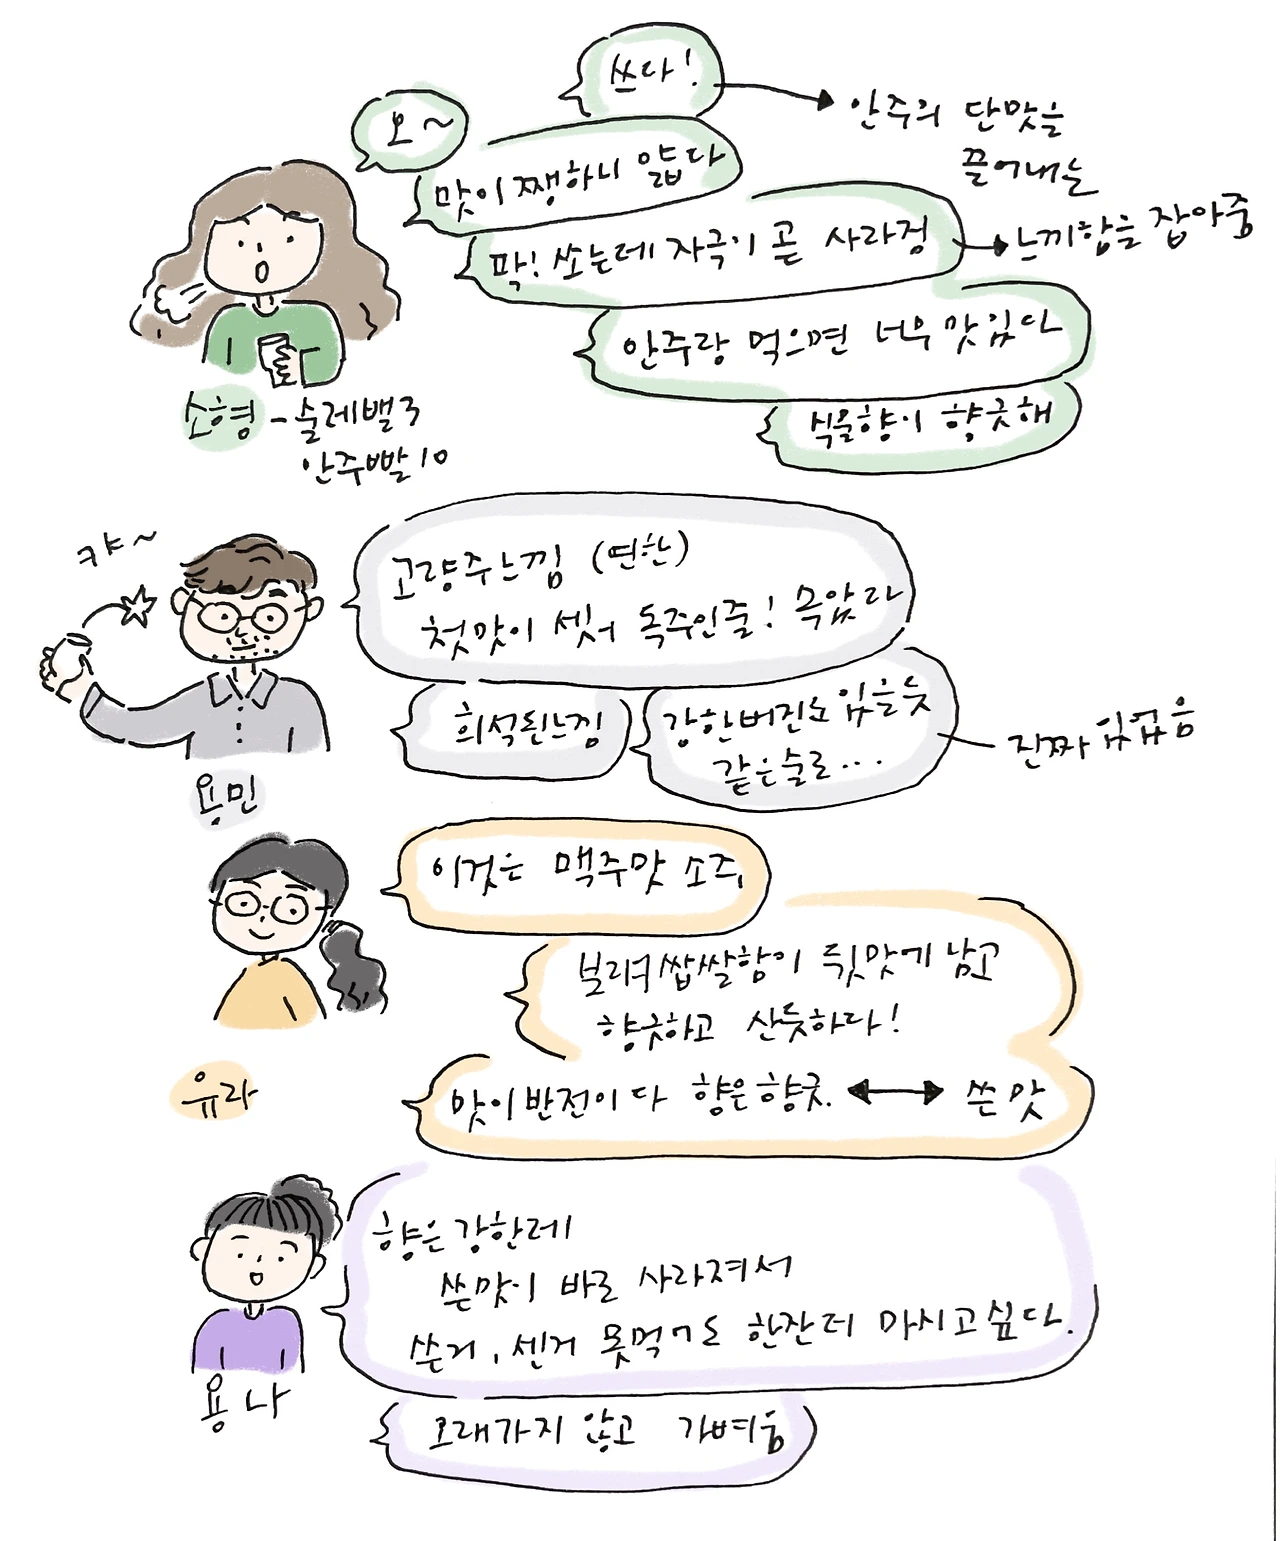 쓰다!
안주의 단맛을
끌어내는
오~
맛이 쨍하니 얇다
막! 쏘는데 자극이 곧 사라정
느끼함을 잡아줌
안주랑 먹으면 너무 맛있다
식물향이 향긋해
소형 - 술레벨 3
안주빨 10
캬~
고량주느낌 (연한)
첫맛이 셋서 독주인줄! 속았다
희석된느낌
강한버전도 있을듯
같은술로...
진짜 있었음
용민
이것은 맥주맛 소주,
보리 쌉쌀함이 뒷맛에 남고
향긋하고 산듯하다!
맛이 반전이다 향은향긋. 쓴 맛
유라
향은 강한데
쓴맛이 바로 사라져서
쓴거, 센거 못먹는도 한잔더 마시고싶다.
오래가지 않고 가벼움
용나